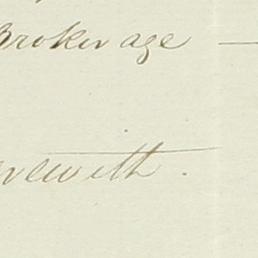 Brokerage —
rewith.